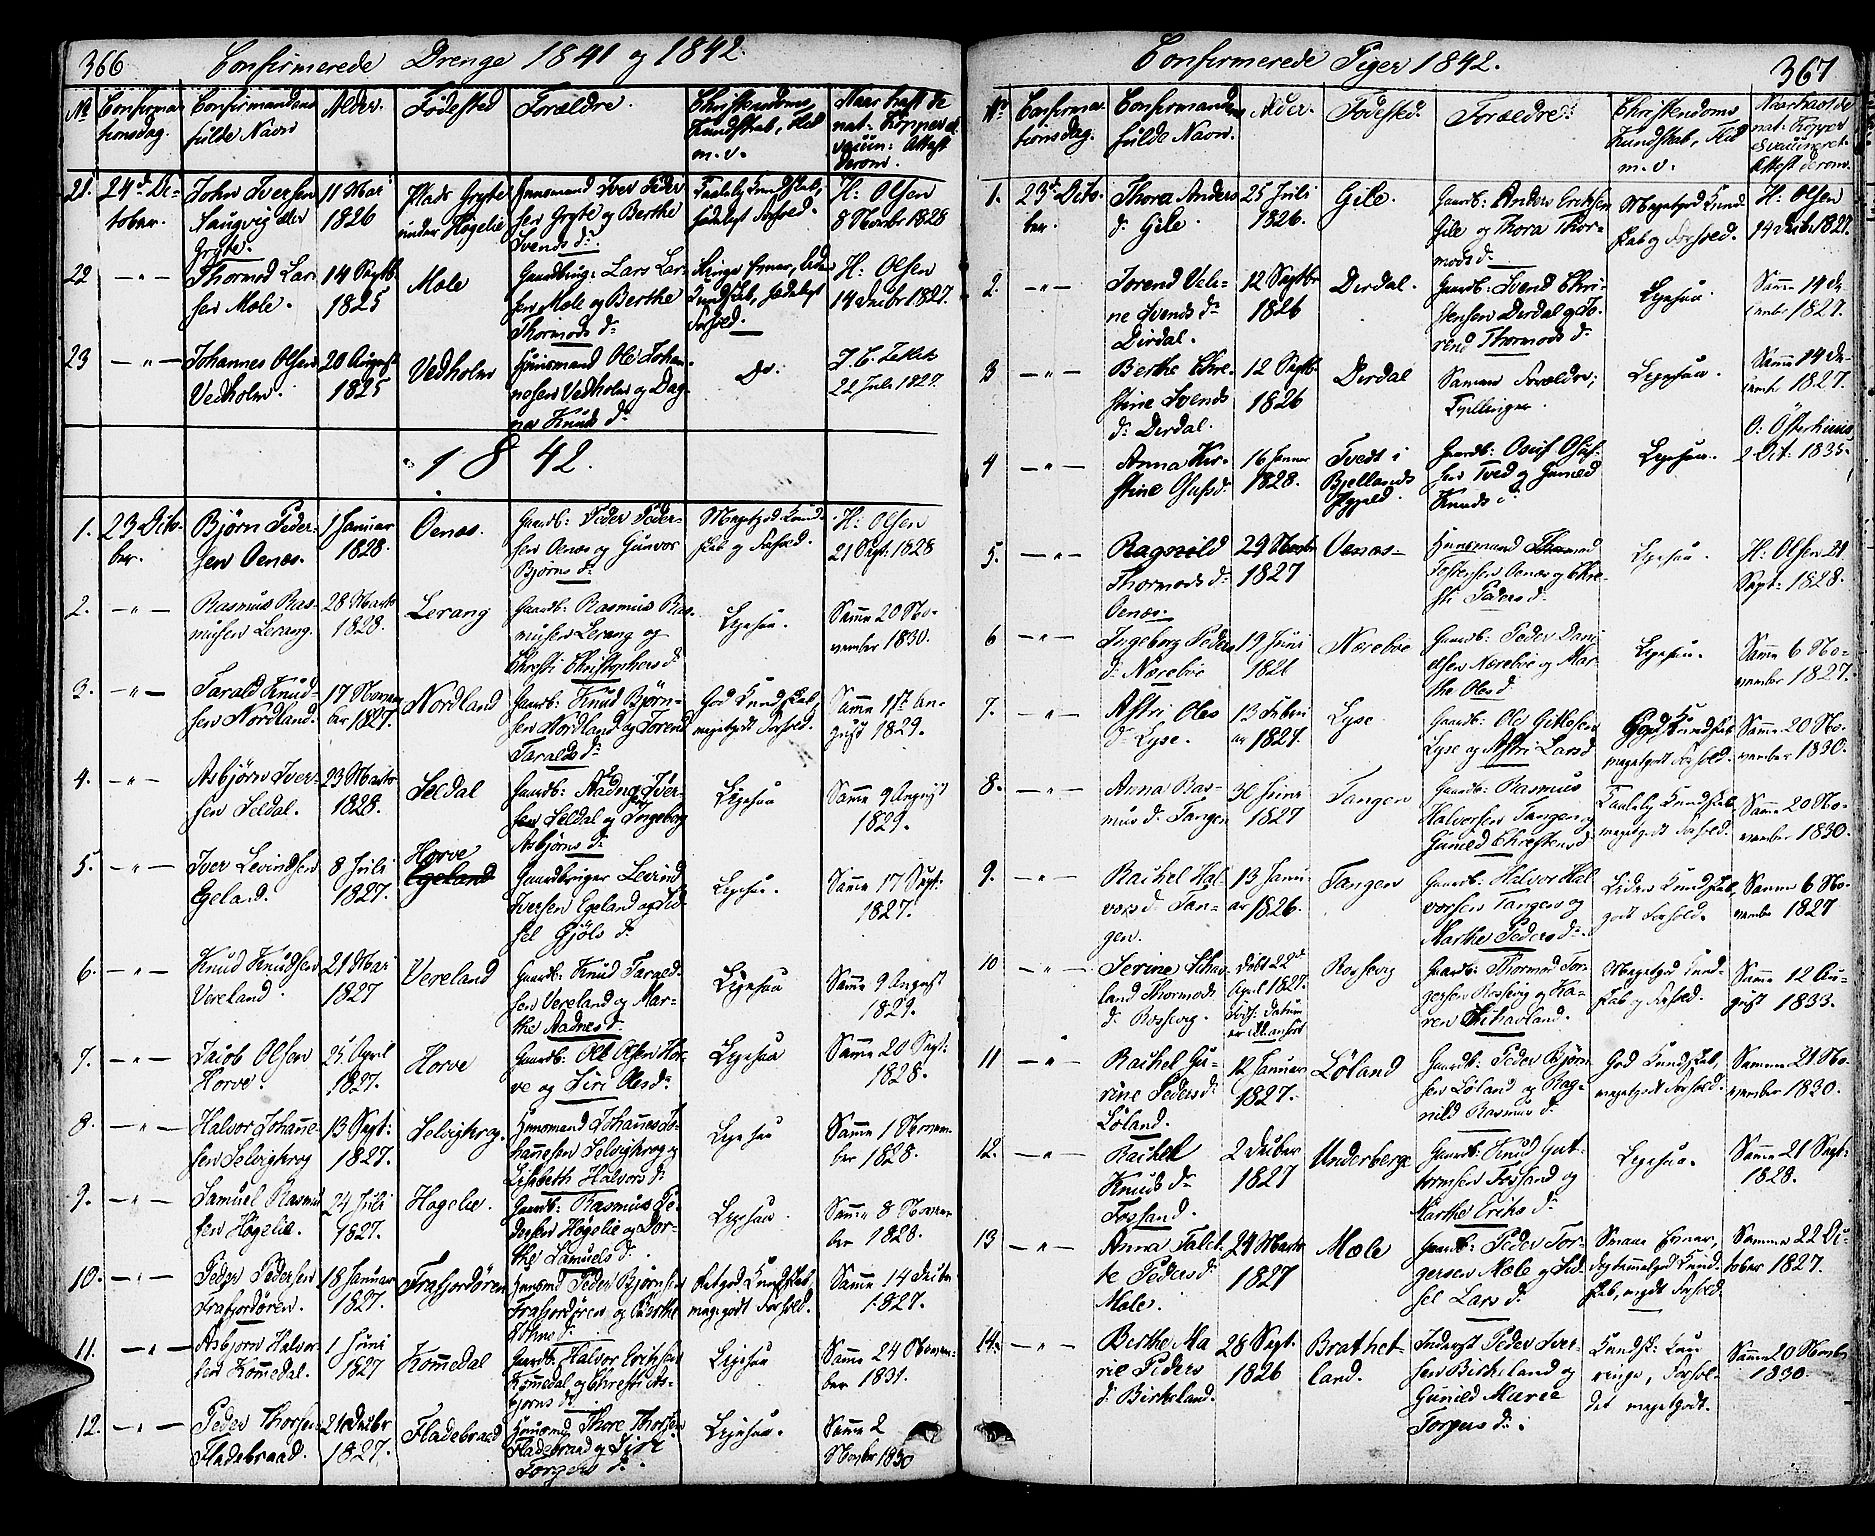 366 Confirmerede Drenge 1841 og 1842.
No Confirmationsdag. Confirmandens fulde Navn Alder. Fødested Forældre. Christendoms Kundskab, Flid m. v. Naar havt de nat: Kopper el. vaccin: Attest derom.
21. 24de October. John Iversen Haugvig eller Gryte. 11 Mai 1826 Plads Gryte under Høgelie Huusmand Iver Peder sen Gryte og Berthe Svends d: Taalelig Kundskab, sædeligt Forhold. H: Olsen 8 Novbr 1828
22 — " — Thormod Larsen Mæle. 14 Septb. 1825 Mæle Gaardbrug: Lars Larsen Mæle og Berthe Thormods d: Ringe Evner, Kundskab, sædeligt Forhold. H: Olsen 14 Decbr 1827.
23 — " — Johannes Olsen Vedholm. 20 August 1825 Vedholm Huusmand Ole Johannesen Vedholm og Dagna Knuds d: Do. 21 Juli 1827.
1842.
1. 23 Octo- ber. Bjørn Pedersen Oenæs. 1 Januar 1828. Oenæs. Gaardb: Peder Pedersen Oenæs og Gunvor Bjørns d: Megetgod Kundskab og Forhold. H: Olsen 21 Sept: 1828
2. — " — Rasmus Rasmusen Lerang. 28 Marts 1828. Lerang Gaardb: Rasmus Rasmusen Lerang og Christi Christophers d: Ligesaa. Samme 20 November 1830.
3. — " — Tarald Knudsen Nordland. 17 November 1827. Nordland Gaardb: Knud Bjørnsen Nordland og Sørend Taralds d: God Kundskab, megetgodt Forhold. Samme 1st August 1829.
4. — " — Asbjørn Iversen Seldal. 23 Marts 1828. Seldal Gaardb: Aadne Iversen Seldal og Ingeborg Asbjørns d: Ligesaa Samme 9 August 1829.
5. — " — Iver Levindsen Egeland. 8 Juli 1827. Horve Egeland Gaardbruger Levind Iversen Egeland og Sidsel Gjøls d: Ligesaa. Samme 17 Sept: 1827.
6. — " — Knud Knudsen Vereland. 21 Mai 1827 Vereland Gaardb: Knud Targedsen Vereland og Marthe Aadnes d. Ligesaa Samme 9 August 1829.
7. — " — Jacob Olsen Horve. 25 April 1827. Horve Gaardb: Ole Olsen Horve og Siri Oles d: Ligesaa Samme 20 Sept: 1828.
8. — " — Halvor Johannesen Selvigkrog 13 Sept: 1827. Selvigkrog. Huusmand Johannes Johannesen Selvigkrog og Lisabeth Halvors d: Ligesaa Samme 1 November 1828.
9. — " — Samuel Rasmussen Høgelie. 24 Juli 1827. Høgelie. Gaardb: Rasmus Pedersen Høgelie og Dorthe Samuels d: Ligesaa. Samme 8 November 1828.
10. — " — Peder Pedersen Frafjordören. 18 Januar 1827. Frafjordören Huusmd Peder Bjørnsen Frafjordören og Berthe d: Retgod Kundskab, megetgodt Forhold. Samme 14 Decbr. 1827.
11. — " — Asbjørn Halvorsen Kommedal. 1 Juni 1827 Kommedal Gaardb: Halvor Eriksen Kommedal og Christi Asbjørns d: Ligesaa Samme 24 November 1831.
12. — " — Peder Thorsen Fladebraad. 21 Decbr 1827. Fladebraad Huusmd Thore Thorsen Fladebraad og Siri Torgers d: Ligesaa. Samme 2 Novber 1830
Confirmerede Piger 1842. 367
No Confirmationsdag. Confirmandens fulde Navn. Alder. Fødested. Forældre: Christendoms Kundskab, Flid m. v. Naar havt de nat: Kopper el vaccineret. Attest derom.
1. 23de October. Thora Anders d: Gile. 25 Juli 1826. Gile. Gaardb: Anders Eriksen Gile og Thora Thormods d: Megetgod Kundskab og Forhold. H: Olsen 14 Decbr 1827.
2. — " — Sørend Valene Svends d: Dirdal. 12 Septbr 1826 Dirdal. Gaardb: Svend Christensen Dirdal og Sørend Thormods d: Ligesaa. Samme 14 December 1827.
3 — " — Berthe Christine Svends d: Dirdal. 12 Septb. 1826 Dirdal Samme Forældre; Tvillinger. Ligesaa. Samme 14 December 1827.
4 — " — Anna Kirstine Osufs d: 16 Januar 1828. Tvedt i Bjellands Gaardb: Osuf Osufsen Tved og Gunild Knuds d: Ligesaa. O: Österhuus, 2 Oct: 1835.
5. — " — Ragnild Thormods d: Oenæs. 29 Novbr 1827 Oenæs Huusmand Thormod Tostensen Oenæs og Christi Peders d: Ligesaa. H: Olsen 21 Sept: 1828.
6 — " — Ingeborg Peders d: Nærebøe 19 Juni 1826 Nærebøe Gaardb: Peder Danielsen Nærebøe og Marthe Oles d. Ligesaa. Samme 6 November 1827.
7. — " — Astri Oles d: Lyse. 13 Februar 1827. Lyse. Gaardb: Ole Lyse og Astri Lars d. God Kundskab megetgodt Forhold. Samme 20 November 1830.
8. — " — Anna Rasmus d: Tangen 30 Juni 1827 Tangen Gaardb: Rasmus Halvorsen Tangen og Gunild Christens d. Taalelig Kundskab, megetgodt Forhold. Samme 20 November 1830.
9. — " — Rachel Halvors d: Tangen. 13 Januar 1826. Tangen Gaardb: Halvor Halvorsen Tangen og Marthe Peders d: Liden Kundskab, godt Forhold. Samme 6 November 1827
10 — " — Serine Schavland Thormods d: Rossevig. Døbt 22de April 1827. Fødsels Datum er ei anført Rossevig Gaardb: Thormod Torgersen Rossevig og Karen Schavland. Megetgod Kundskab og Forhold. Samme 12 August 1833.
11 — " — Rachel Gurine Peders d: Löland. 12 Januar 1827. Löland Gaardb: Peder Bjørnsen Löland og Ragnild Rasmus d: God Kundskab, megetgodt Forhold. Samme 21 November 1830.
12. — " — Rachel Knuds d: Fossand. 2 Decber 1827 Underberge Gaardb: Knud Guttormsen Fossand og Marthe Eriks d: Ligesaa. Samme 21 Sept: 1828.
13 — " — Anna Talette Peders d: Mæle. 24 Marts 1827 Mæle Gaardb: Peder Torgersen Mæle og Sidsel Lars d: Smaae Evner, dog temmelgod Kundskab, megodt Forhold. Samme 22 October 1827.
14. — " — Berthe Marie Peders d: Birkeland. 28 Sept: 1826 Brathetland. Inderst Peder Iversen Birkeland og Gunild Marie Torgers d: Kundsk: kun ringe, Forholdet megetgodt. Samme 20 Novbr 1830.